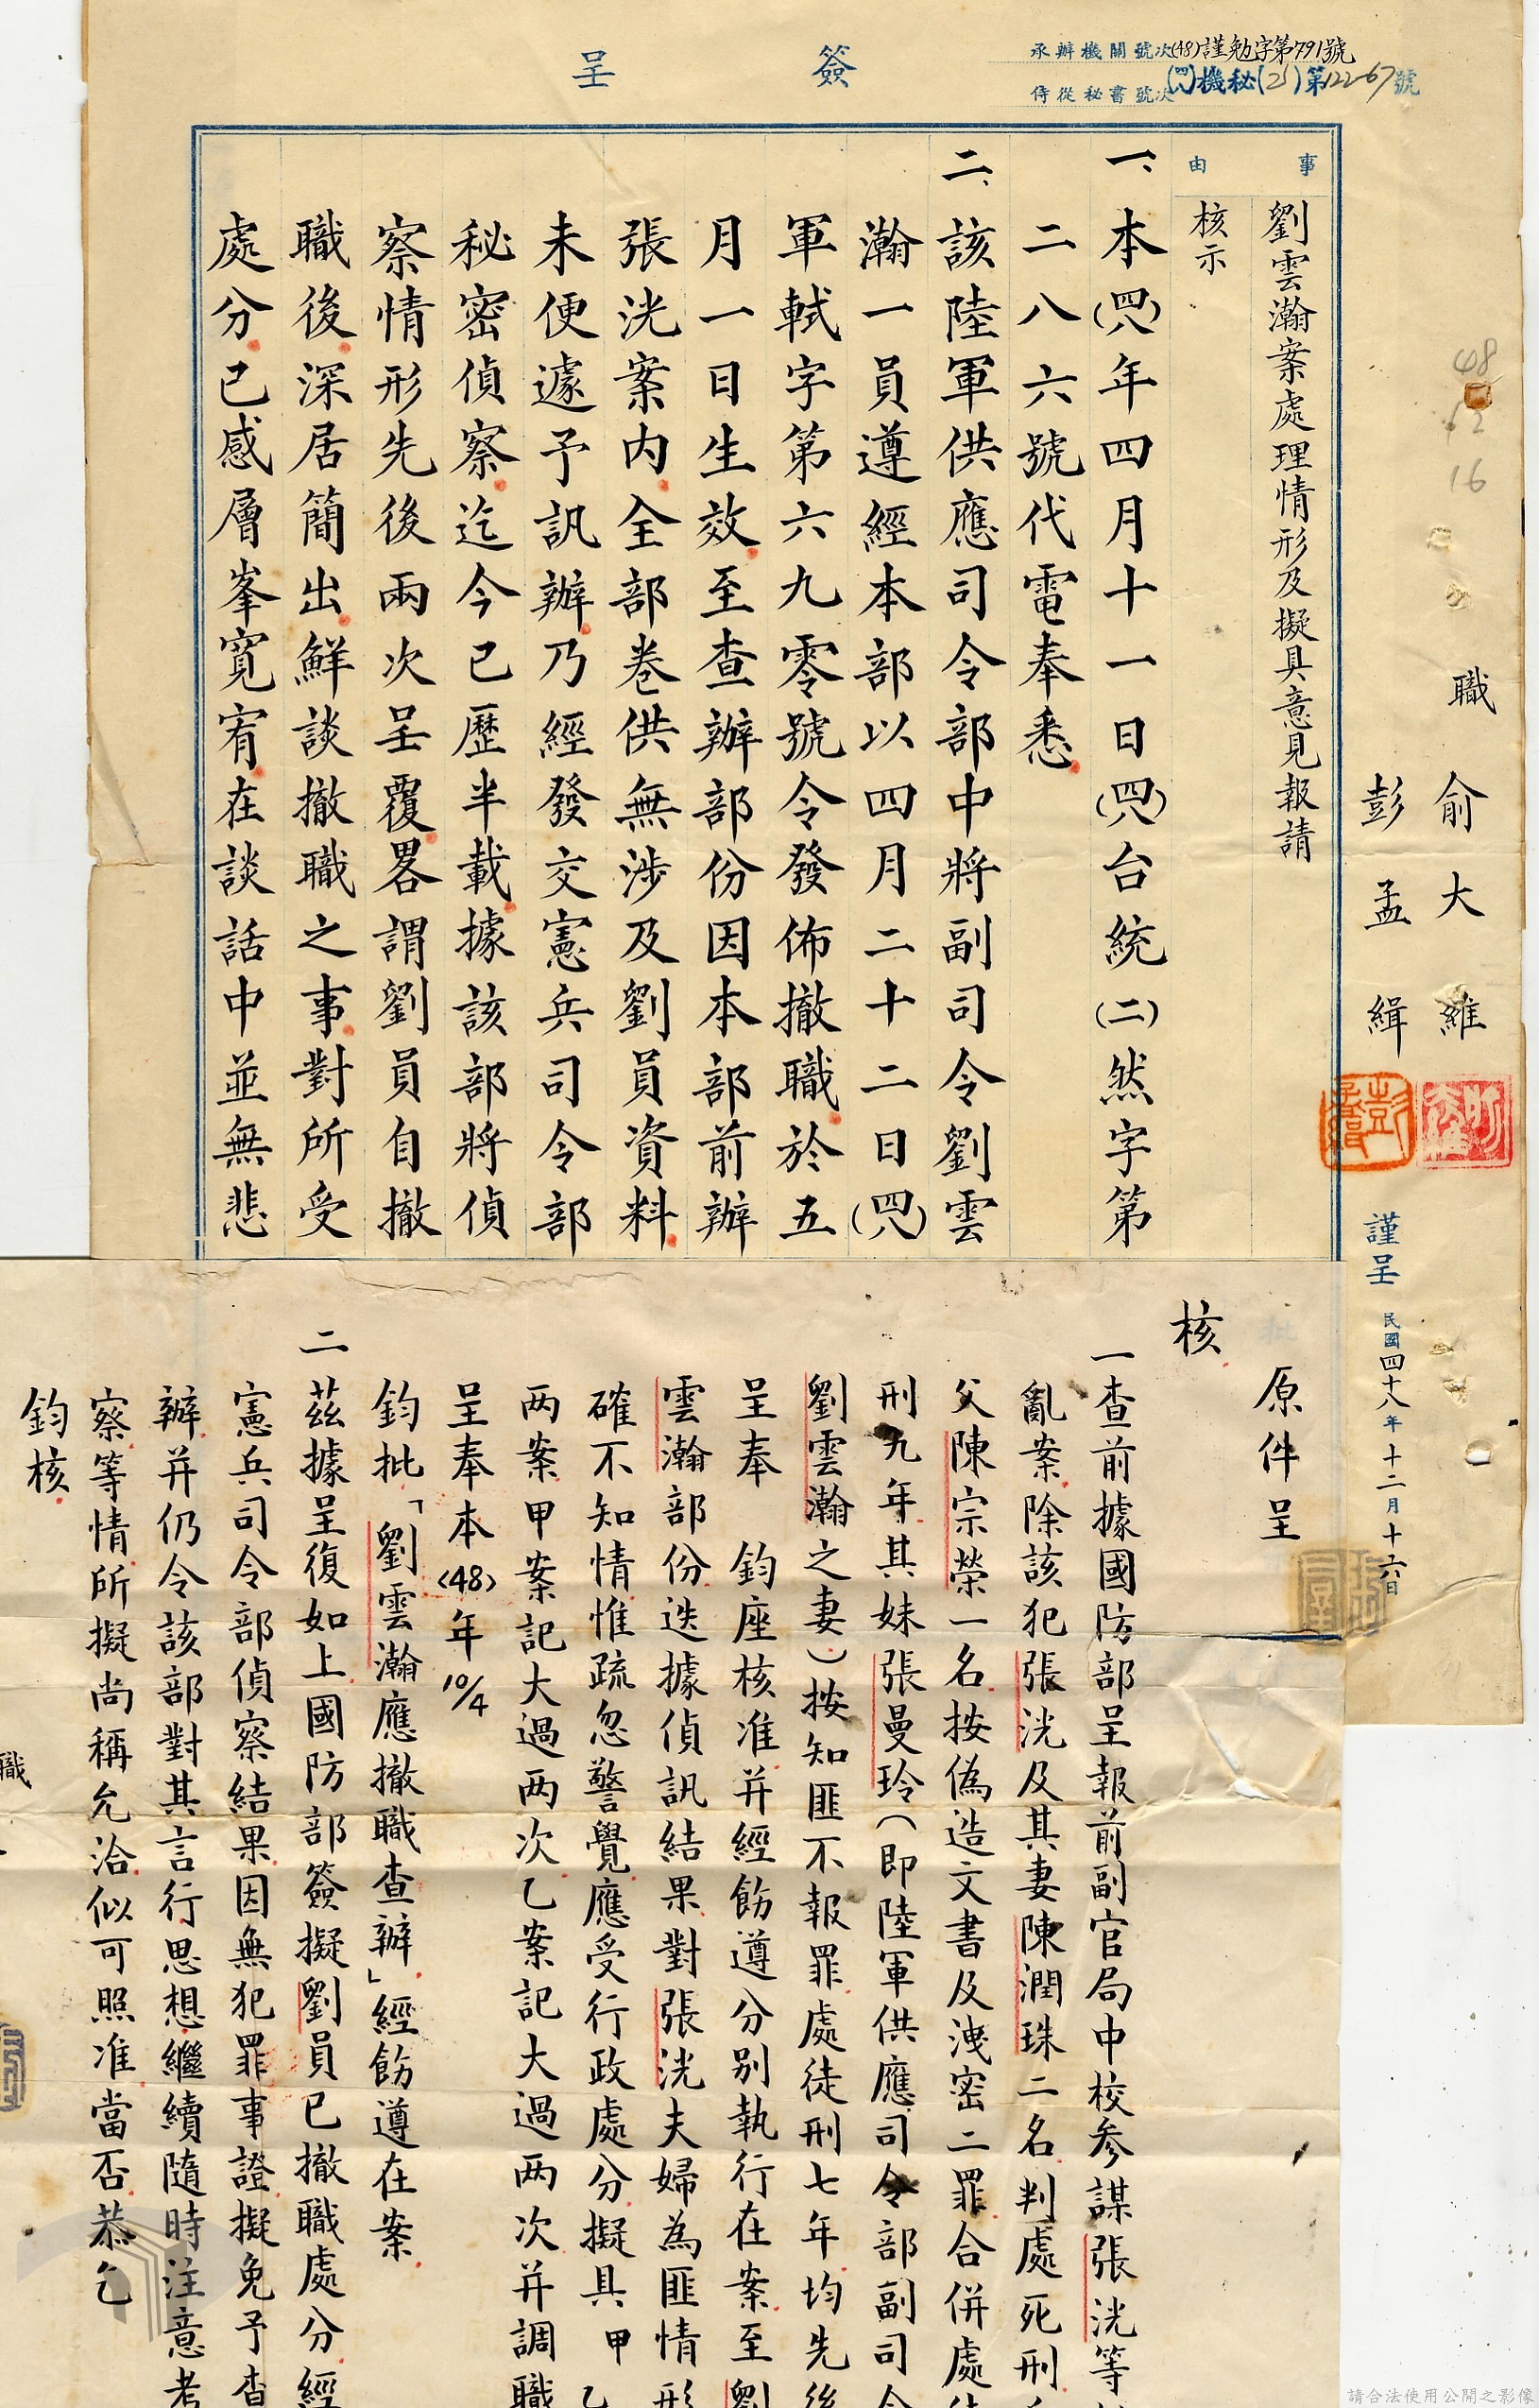 簽呈
承辦機關號次(48)謹勉字第791號
侍從秘書號次(四八)機秘(乙)第122-67號
事由
劉雲瀚案處理情形及擬具意見報請
核示
一、本(四八)年四月十一日(四八)台統(二)然字第
二八六號代電奉悉
二、該陸軍供應司令部中將副司令劉雲
瀚一員遵經本部以四月二十二日(四八)
軍軾字第六九零號令發佈撤職於五
月一日生效至查辦部份因本部前辦
張洸案內全部卷供無涉及劉員資料
未便遽予訊辦乃經發交憲兵司令部
秘密偵察迄今已歷半載據該部將偵
察情形先後兩次呈覆畧謂劉員自撤
職後深居簡出鮮談撤職之事對所受
處分已感層峯寬宥在談話中並無悲
48
12
16
職 俞大維
彭孟緝
謹呈 民國四十八年十二月十六日
原件呈
核
一查前據國防部呈報前副官局中校參謀張洸等
亂案除該犯張洸及其妻陳潤珠二名判處死刑
父陳宗榮一名按偽造文書及洩密二罪合併處
刑九年其妹張曼玲(即陸軍供應司令部副司令
劉雲瀚之妻)按知匪不報罪處徒刑七年均先後
呈奉 鈞座核准并經飭遵分別執行在案至劉
雲瀚部份迭據偵訊結果對張洸夫婦為匪情形
確不知情惟疏忽警覺應受行政處分擬具甲乙
两案甲案記大過两次乙案記大過两次并調職
呈奉本<48>年10/4
鈞批「劉雲瀚應撤職查辦」經飭遵在案
二茲據呈復如上國防部簽擬劉員已撤職處分經
憲兵司令部偵察結果因無犯罪事證擬免予查
辦并仍令該部對其言行思想繼續隨時注意考
察等情所擬尚稱允洽似可照准當否恭乞
鈞核
職
請合法使用公開之影像